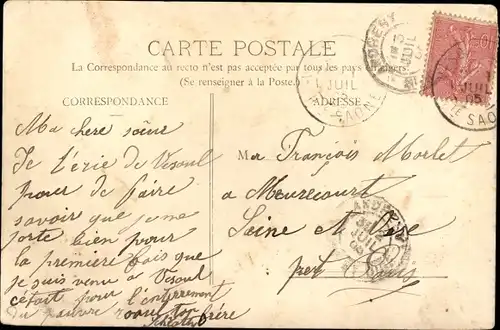 CARTE POSTALE
La Correspondance au recto n'est pas acceptée par tous les pays étrangers
(Se renseigner à la Poste.)
CORRESPONDANCE
ADRESSE
Ma chere sœur
Je t'érie de Vesoul
pour de faire
savoir que je me
porte bien pour
la première fois que
je suis venu a Vesoul
cétait pour l'enterrement
du pauvre
frère
Mr François Morlet
a Meurecourt
Seine et Oise
par
JUIL
05
SAONE
JUIL
SAONE
JUIL
JUIL
10